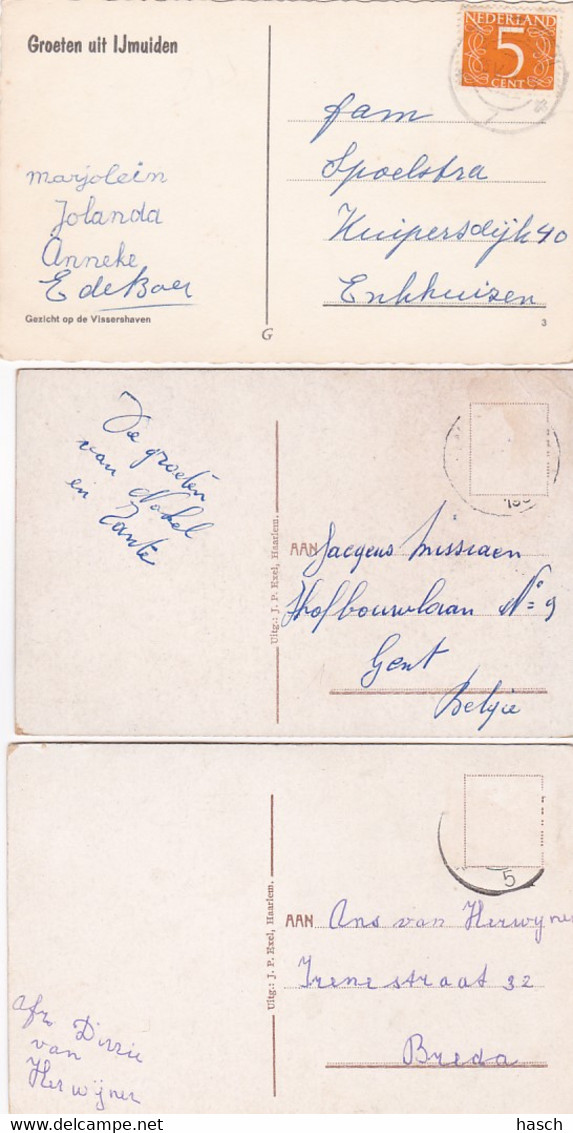 Groeten uit IJmuiden
NEDERLAND
5
CENT
marjolein
Jolanda
Anneke
E de Boer
Gezicht op de Vissershaven
fam
Spoelstra
Kuipersdijk 40
Enkhuizen
G
3
De groeten
van Nokel
en Tante
Uitg.: J. P. Exel, Haarlem.
AAN Jacques Missiaen
Hofbouwlaan Nº 9
Gent
België
Uitg.: J. P. Exel, Haarlem.
5
AAN Ans van Herwijnen
Irenestraat 32
Breda
afz Dirrie
van
Herwijnen
hasch